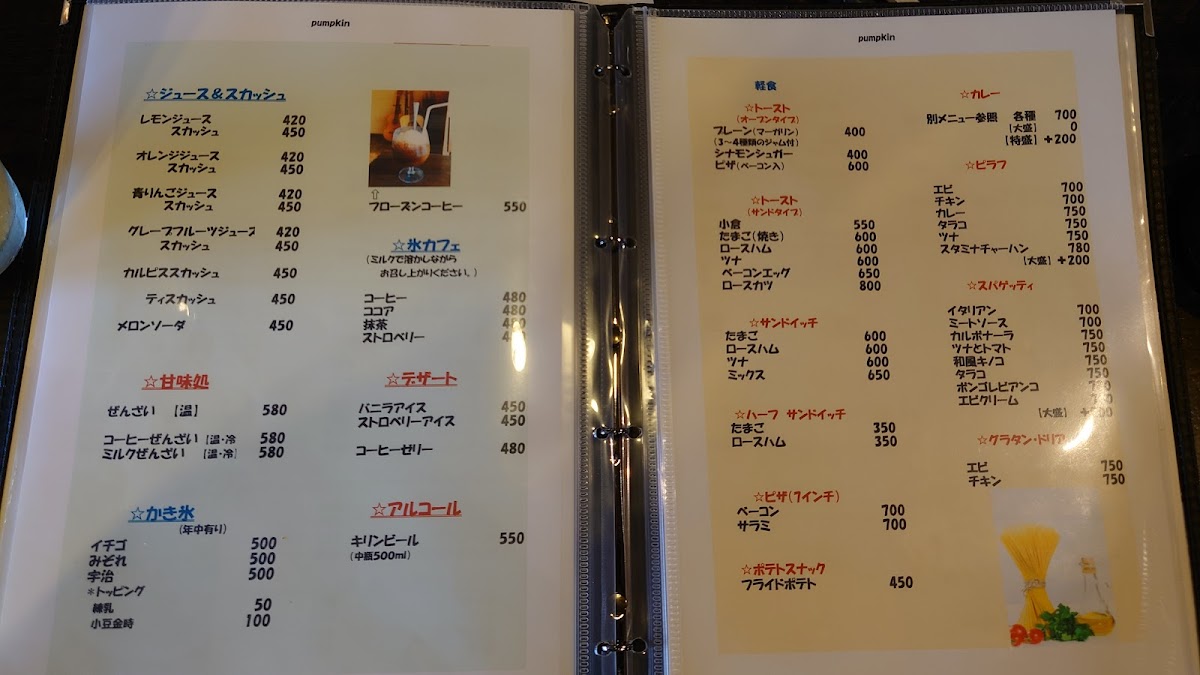 pumpkin
☆ジュース&スカッシュ
レモンジュース 420
スカッシュ 450
オレンジジュース 420
スカッシュ 450
青りんごジュース 420
スカッシュ 450
グレープフルーツジュース 420
スカッシュ 450
カルピススカッシュ 450
ティスカッシュ 450
メロンソーダ 450
☆甘味処
ぜんざい 【温】 580
コーヒーぜんざい 【温・冷】 580
ミルクぜんざい 【温・冷】 580
☆かき氷
(年中有り)
イチゴ 500
みぞれ 500
宇治 500
*トッピング
練乳 50
小豆金時 100
⇧
フローズンコーヒー 550
☆氷カフェ
(ミルクで溶かしながら
お召し上がりください。)
コーヒー 480
ココア 480
抹茶 480
ストロベリー
☆デザート
バニラアイス 450
ストロベリーアイス 450
コーヒーゼリー 480
☆アルコール
キリンビール 550
(中瓶500ml)
pumpkin
軽食
☆トースト
(オープンタイプ)
プレーン(マーガリン) 400
(3~4種類のジャム付)
シナモンシュガー 400
ピザ(ベーコン入) 600
☆トースト
(サンドタイプ)
小倉 550
たまご(焼き) 600
ロースハム 600
ツナ 600
ベーコンエッグ 650
ロースカツ 800
☆サンドイッチ
たまご 600
ロースハム 600
ツナ 600
ミックス 650
☆ハーフ サンドイッチ
たまご 350
ロースハム 350
☆ピザ(7インチ)
ベーコン 700
サラミ 700
☆ポテトスナック
フライドポテト 450
☆カレー
別メニュー参照 各種 700
【大盛】 0
【特盛】 +200
☆ピラフ
エビ 700
チキン 700
カレー 750
タラコ 750
ツナ 750
スタミナチャーハン 780
【大盛】 +200
☆スパゲッティ
イタリアン 700
ミートソース 700
カルボナーラ 750
ツナとトマト 750
和風キノコ 750
タラコ 750
ボンゴレビアンコ
エビクリーム
【大盛】
☆グラタン・ドリア
エビ 750
チキン 750